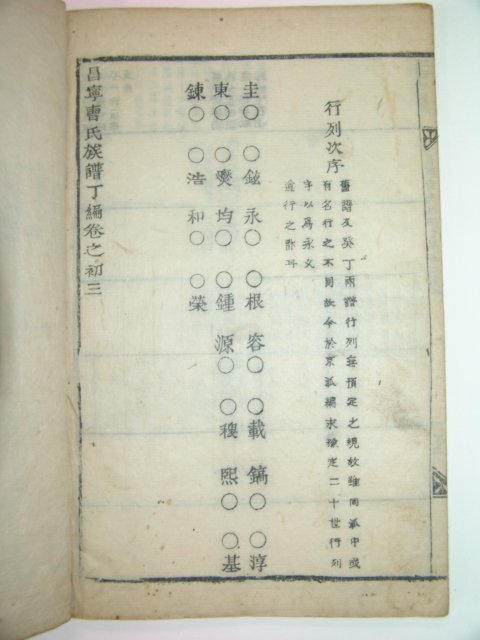 行列次序
舊譜及癸丁兩譜行列無預定之規故雖同派中或
有名行之不同故今於京派編末擬定二十世行列
字以爲永久
遵行之計耳
圭○ ○鉉 永○ ○根 容○ ○載 鎬○ ○淳
東○ ○燮 均○ ○鍾 源○ ○稷 熙○ ○基
鍊○ ○浩 和○ ○榮
昌寧曺氏族譜丁編卷之初 三